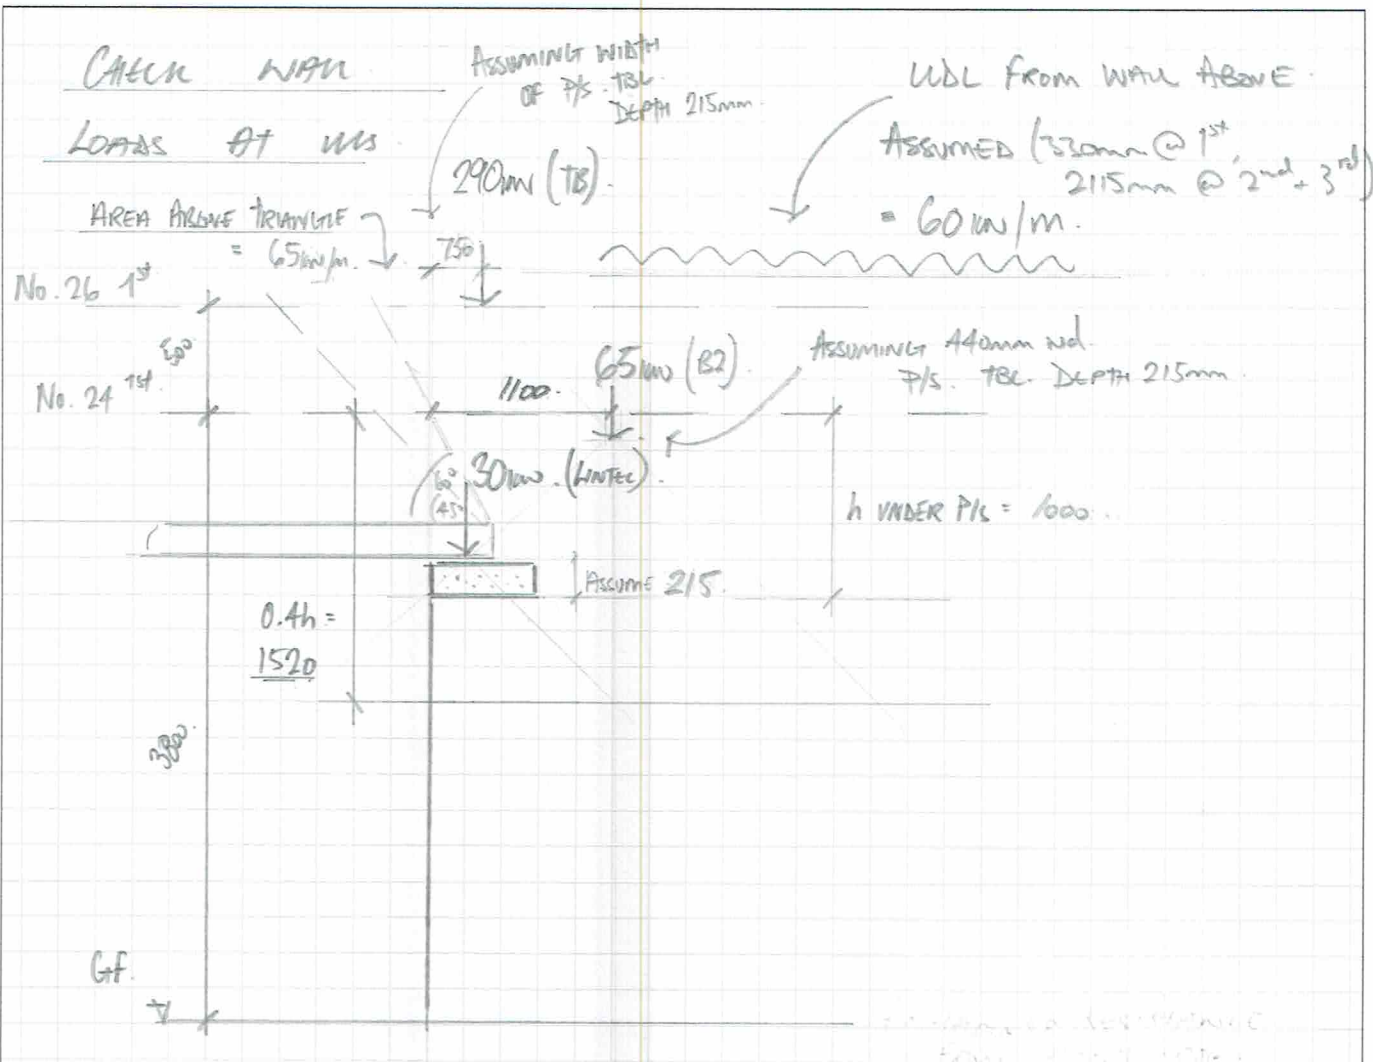 CHECK WALL
LOADS AT ULS
ASSUMING WIDTH
OF P/S. TBC.
DEPTH 215mm.
UDL FROM WALL ABOVE.
ASSUMED (330mm @ 1st,
2115mm @ 2nd + 3rd)
= 60kN/m.
290kN (TB).
AREA ABOVE TRIANGLE
= 65kN/m.
750
No. 26 1st
No. 24 1st
1100.
65kN (B2)
ASSUMING 440mm wd.
P/S. TBC. DEPTH 215mm.
60°
(45
30kN. (LINTEL).
h UNDER P/S = 1000.
ASSUME 215.
0.4h =
1520
3800.
GF.